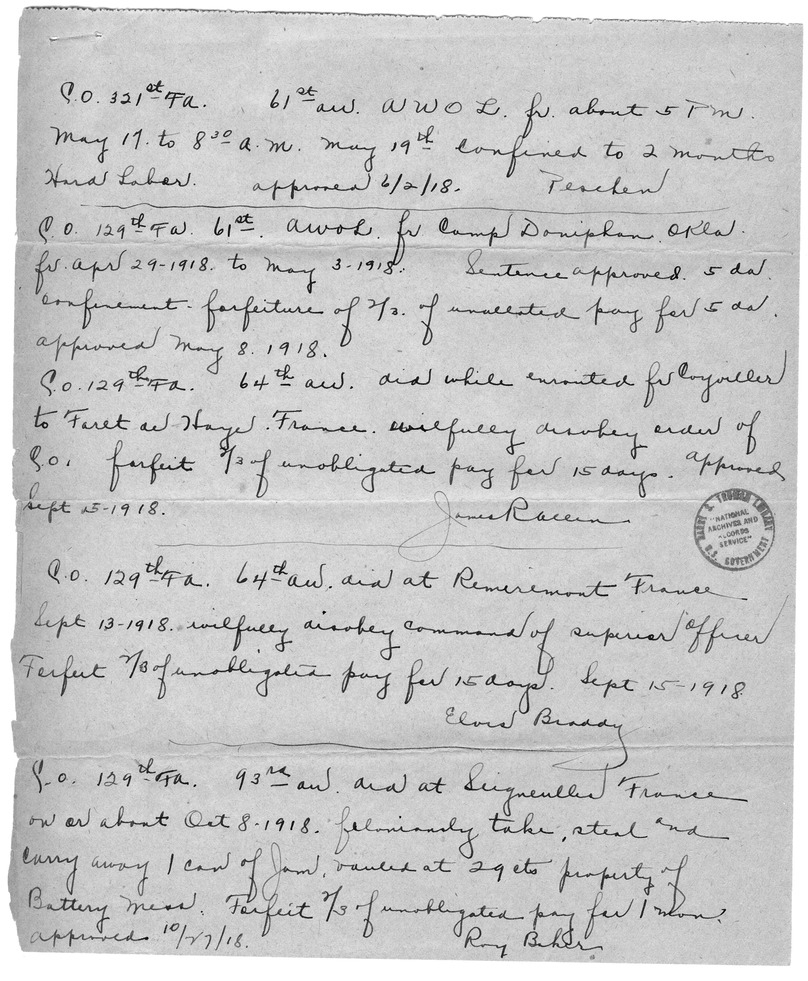 C.O. 321st F.A. 61st aw. A W O L. fr. about 5 P.M.
May 17. to 8 30 A.M. May 19th confined to 2 months
Hard Labor. approved 6/2/18. Peschen
C.O. 129th F.A. 61st. AWOL. fr Camp Doniphan. Okla.
fr. Apr 29-1918. to May 3-1918. Sentence approved. 5 da.
confinement - forfeiture of 2/3. of unallotted pay for 5 da.
approved May 8. 1918.
C.O. 129th F.A. 64th aw. did while enrouted fr Coyviller
to Foret de Haye. France. wilfully disobey order of
C.O. forfeit 2/3 of unobligated pay for 15 days. approved
Sept 15-1918. James
HARRY S. TRUMAN LIBRARY
"NATIONAL
ARCHIVES AND
RECORDS
SERVICE"
U.S. GOVERNMENT
C.O. 129th F.A. 64th aw. did at Remiremont France
Sept 13-1918. wilfully disobey command of superior officer
Forfeit 2/3 of unobligated pay for 15 days. Sept 15-1918
Elvis Braddy
C.O. 129th F.A. 93rd aw. did at Seigneulles France
on or about Oct 8-1918. feloniously take, steal and
carry away 1 can of Jam, valued at 29 cts property of
Battery Mess. Forfeit 2/3 of unobligated pay for 1 mon.
approved 10/27/18. Roy Baker